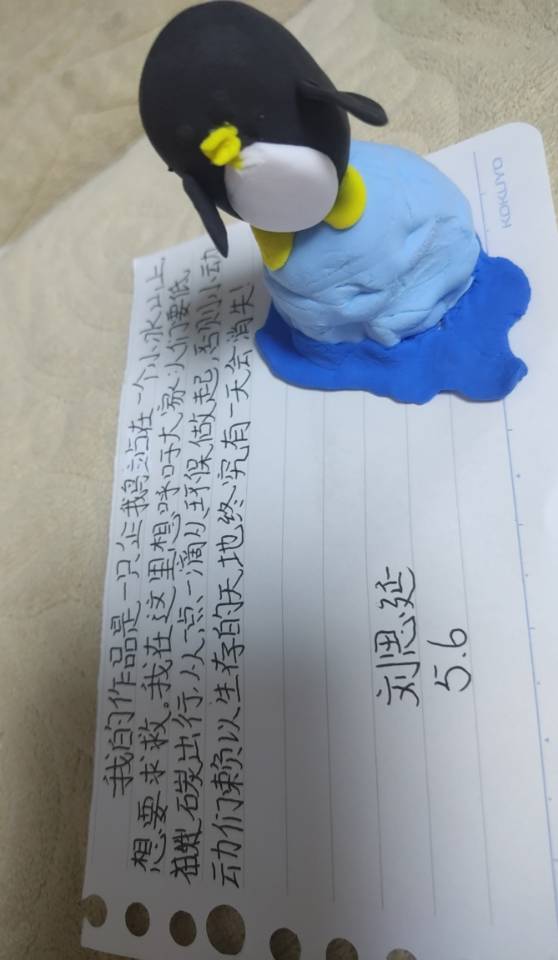 我的作品是一只企鹅站在一个小冰山上,
想要求救。我在这里想呼吁大家人们要低
碳出行,从一点一滴从环保做起,否则小动
动们赖以生存的天地终究有一天会消失
刘思延
5.6
KOKUYO